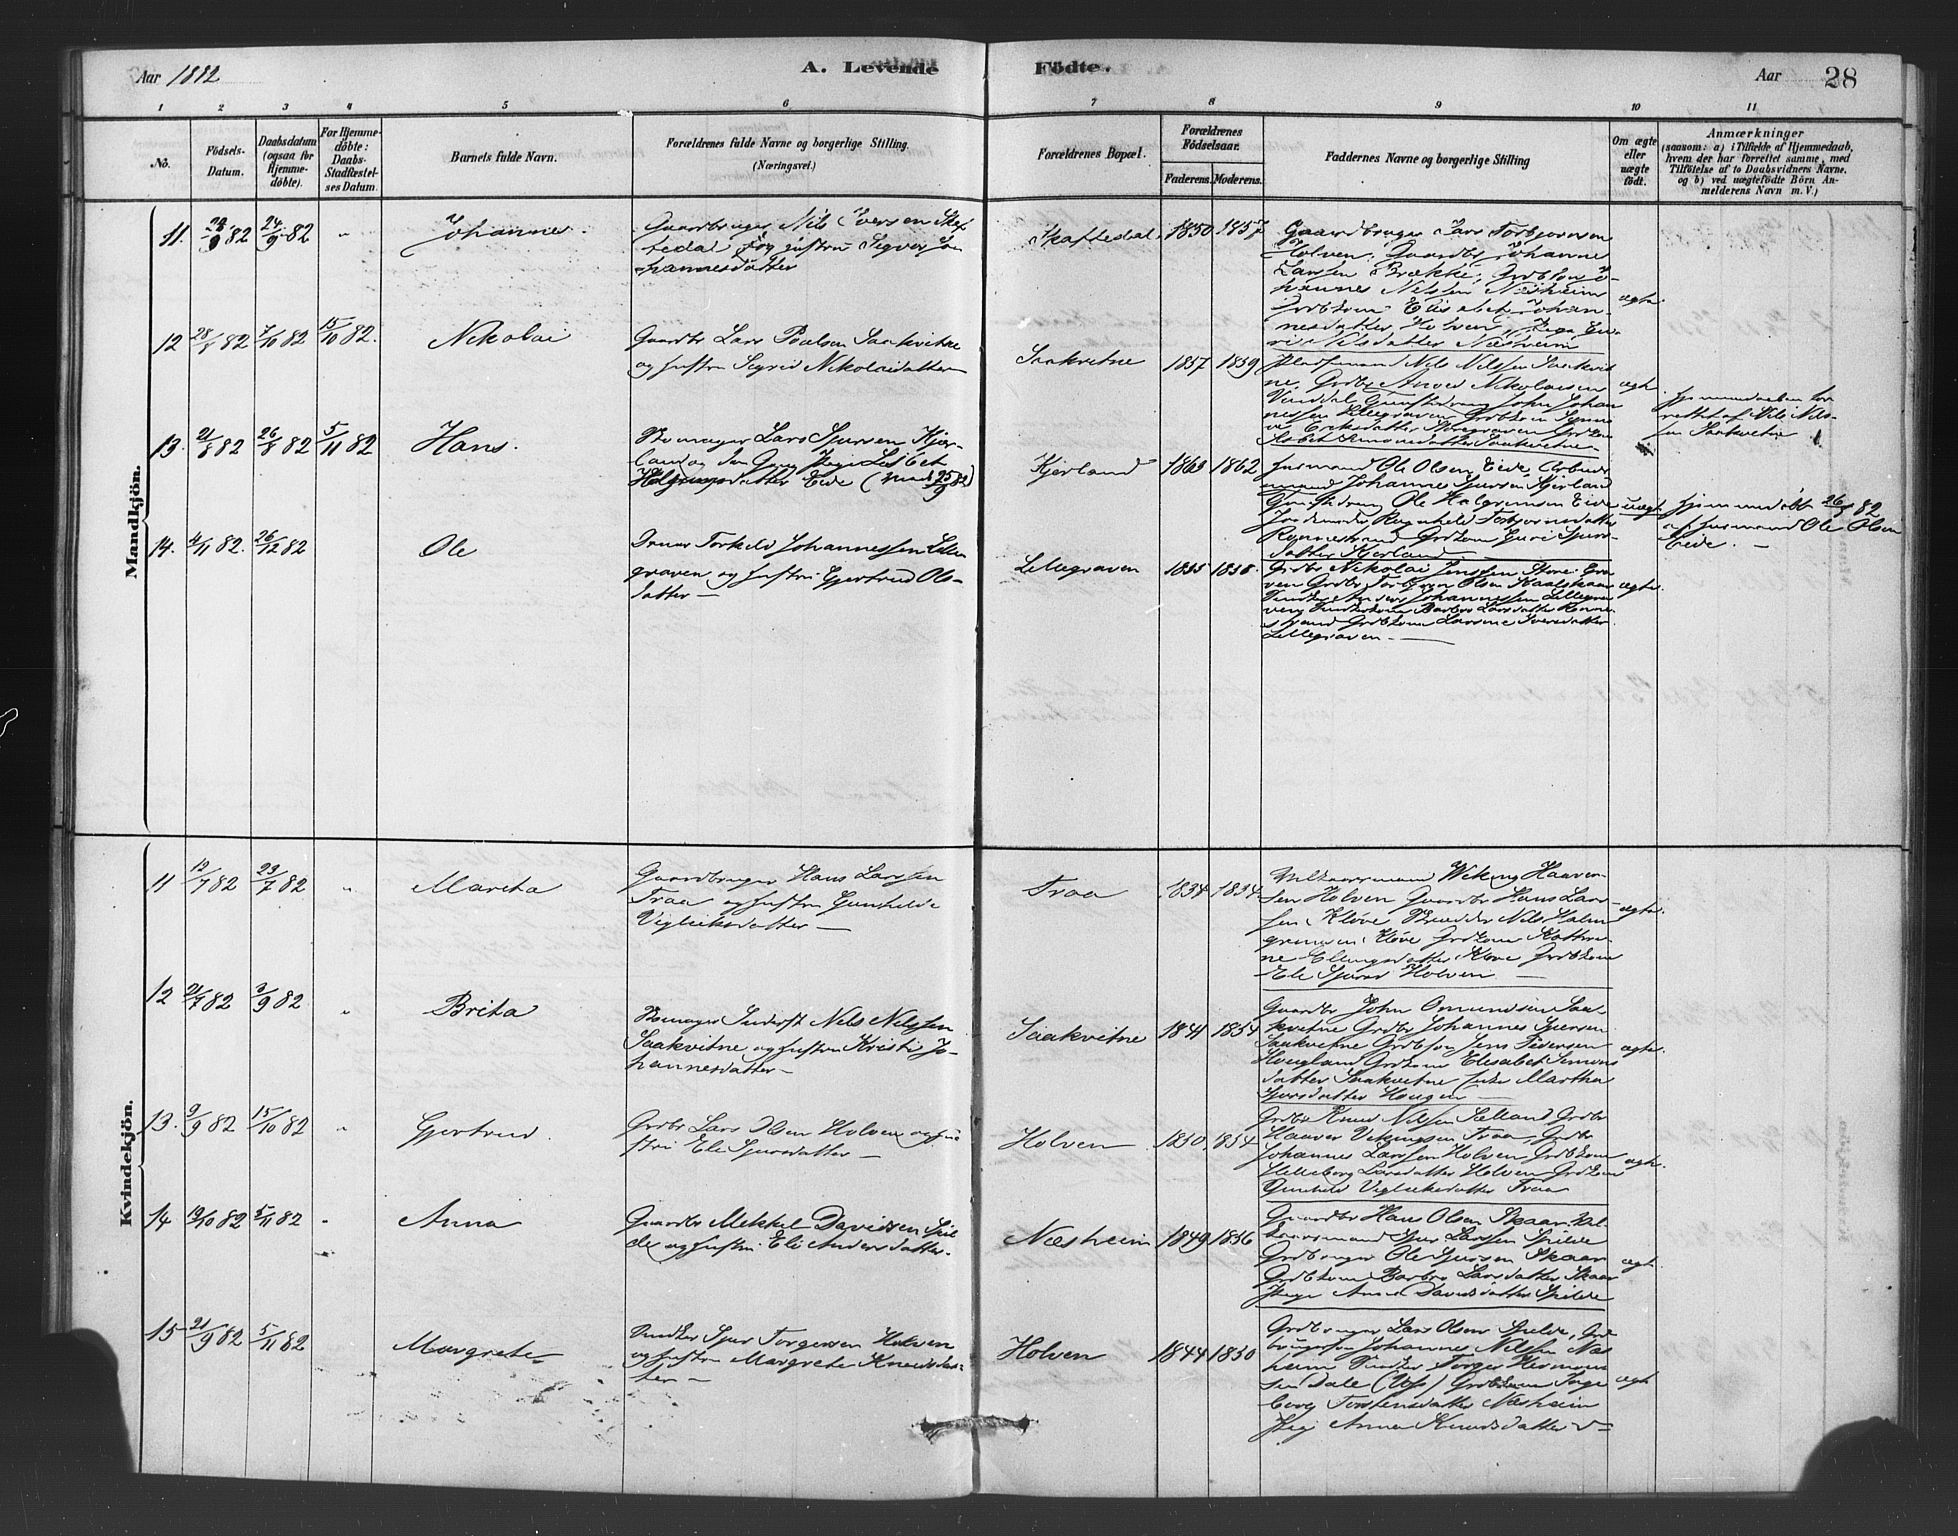 Aar 1882
A. Levende
Födte.
Aar
28
1 2 3 4 5 6 7 8 9 10 11
No.
Födsels-
Datum.
Daabsdatum
(ogsaa for
Hjemme-
döbte).
For Hjemme-
döbte:
Daabs-
Stadfæstel-
ses Datum.
Barnets fulde Navn.
Forældrenes fulde Navne og borgerlige Stilling.
(Næringsvei.)
Forældrenes Bopæl.
Forældrenes
Födselsaar.
Faderens. Moderens.
Faddernes Navne og borgerlige Stilling
Om ægte
eller
uægte
födt.
Anmærkninger
(saasom: a) i Tilfælde af Hjemmedaab,
hvem der har forrettet samme, med
Tilföielse af to Daabsvidners Navne,
og b) ved uægtefödte Börn An-
melderens Navn m. V.)
Mandkjön.
11. 9 82 24/9 82 " Johannes.
Gaardbruger Nils Iversen Skaf-
tedal og Hustru Sigvor Jo
hannesdatter
Skaftedal 1850 1857
Gaardbruger Lars Torbjørnsen
Holven, Gaardbr Johanne
Larsen Brække, Grdbsøn Jo
hannes Nilsen Næsheim
Grdbkone Elisabet Johan-
nesdatter Holven, Pige Gu-
ri Nilsdatter Næsheim
ægte.
12 28/8 82 7/10 82 15/10 82. Nikolai
Gaardbr Lars Poulsen Saakvitne
og Hustru Sigrid Nikolaidatter
Saakvitne 1857 1859
Pladsmand Nils Nilsen Saakvit
ne, Grdbr Amund Nikolaisen
Johan
nessen Lillegraven Grdbkone
Eriksdatter Storegraven Grdkone
Elisabet Simonsdatter Saakvitne
ægte
Hjemmedaaben for
rettet af Nils Nils-
sen Saakvitne
13. 21/8 82 26/8 82 5/11 82 Hans.
Skomager Lars Sjursen Kjer-
land og den Pige Lisbet
Halgrimsdatter Eide
Kjerland 1863 1862
Husmand Ole Olsen Eide, Arbeids
mand Johannes Sjursen Kjerland
Ole Halgrimsen Eide
Jordemoder Ragnhild Torbjørnsdatter
Ronnestrand Grdkone Guri Sjurs-
datter Kjerland
uægt.
Hjemmedöbt 26/8 82
af Husmand Ole Olsen
Eide. —
14. 4/11 82. 26/12 82 Ole
Torkeld Johannessen Lille
graven og Hustru Gjertrud Ols-
datter —
Lillegraven 1835 1838.
Grdbr Nikolai Jenssen Store Gra
ven Grdbr Torbjørn Olsen
Anders Johannessen Lillegra
ven, Barbro Larsdatter Ronne-
strand Grdbkone Larsine Iversdatter
Lillegraven. —
ægte.
Kvindekjön.
11 12/7 82 23/7 82 " Marita
Gaardbruger Hans Larssen
Traa og Hustru Gunhilde
Vigleiksdatter —
Traa 1834 1834
Wiking Haaver-
sen Holven Gaardbr Hans Lars-
sen Kløve Nils Halm-
grimsen Kløve Grdkone Kathri-
ne Ellingsdatter Kløve Grdbkone
Ele Sjursd Holven —
ægte.
12 21/7 82 3/9 82 " Brita
Skomager Nils Nilssen
Saakvitne og Hustru Kristi Jo-
hannesdatter —
Saakvitne 1841 1854
Gaardbr John Omundsen Saa-
kvitne Grdbr Johannes Sjursen
Saakvitne Grdbsøn Jens Pedersen
Hougland Grdkone Elisabet Simons
datter Saakvitne Pike Martha
Sjursdatter Haugen —
ægte.
13. 9/9 82 15/10 82 " Gjertrud.
Grdbr Lars Olsen Holven og Hu
stru Ele Sjursdatter —
Holven 1850 1854
Grdbr Knud Nilsen Grdbr
Haaver Vikingsen Traa, Grdbr
Johannes Larssen Holven Grdbkone
Larsdatter Holven Grdkone
Gunhild Vigleiksdatter Traa
ægte.
14 19/10 82 5/11 82 " Anna
Gaardbr Mikkel Davidsen Spil
de og Hustru Eli Andersdatter
Næsheim 1849 1856
Gaardbr Hans Olsen Skaar,
Sjur Larssen Spilde
Grdbruger Ole Sjursen Skaar
Grdbkone Barbro Larsdatter Skaar
Pige Anna Davidsdatter Spilde
ægte.
15 21/9 82 5/11 82 Margrete
Sjur Torgersen Holven
og Hustru Margrete Knudsdat-
ter —
Holven 1844 1850
Grdbruger Lars Olsen Spilde, Grd
Johannes Nilsen Næs
heim Torger
sen Dale (Ulv) Grdbkone Inge
borg Torstensdatter Næsheim
Pig Anna Knudsdatter
ægte